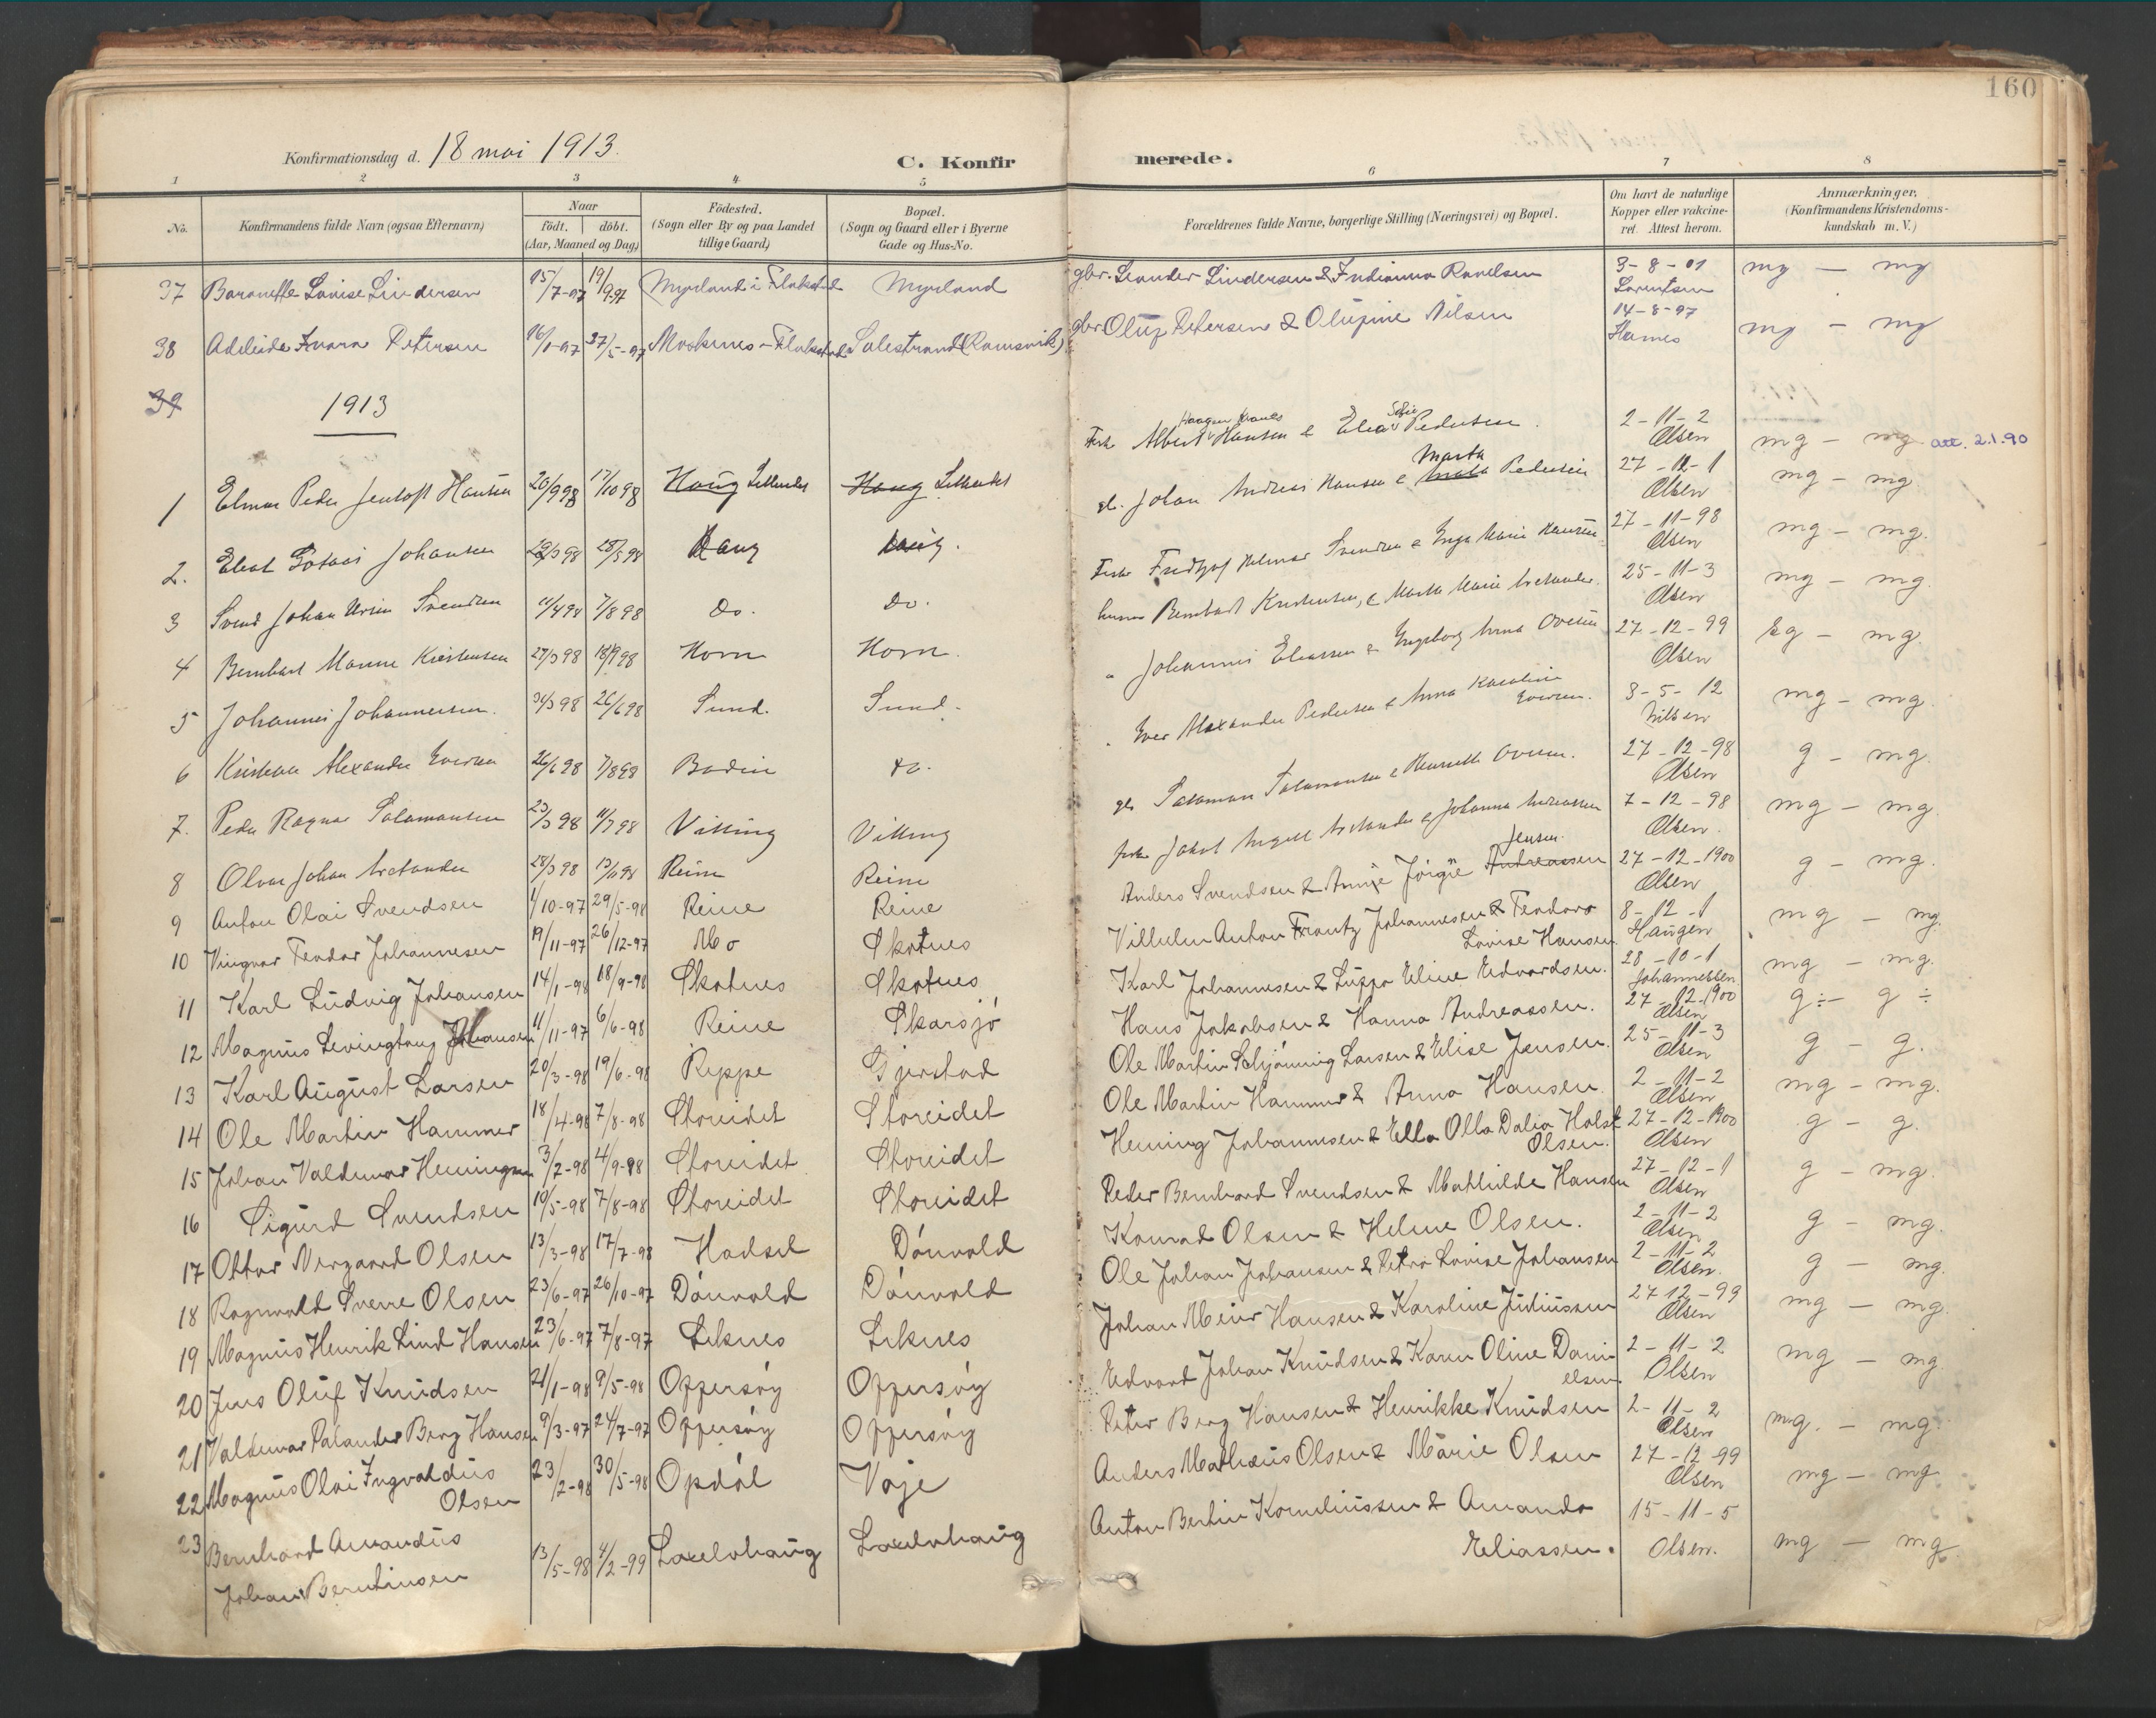 160
Konfirmationsdag d. 18 mai 1913.
C. Konfir merede.
1 2 3 4 5 6 7 8
No. Konfirmandens fulde Navn (ogsaa Efternavn) Naar födt. döbt. (Aar, Maaned og Dag) Födested. (Sogn eller By og paa Landet tillige Gaard) Bopæl. (Sogn og Gaard eller i Byerne Gade og Hus-No. Forældrenes fulde Navne, borgerlige Stilling (Næringsvei) og Bopæl. Om havt de naturlige Kopper eller vakcineret. Attest herom. Anmærkninger. (Konfirmandens Kristendomskundskab m. V.)
37 Lovise Lindersen 15/7-97 19/9.97 Myrland i Flakstad Myrland gbr. Leander Lindersen & 3-8-01 Lorentsen mg — mg
38 Petersen 27/5-97 Moskenes - Flakstad gbr Oluf Petersen & Olufine Nilsen 14-8-97 mg — mg
39 1913
1 Elmar Peder Jentoft Hansen 20/9 98 17/10 98 Haug Haug Albert Hansen & Sofie Pedersen. 2-11-2 Olsen mg - mg att. 2.1.90
2. Johansen 28/5 98 Haug Haug. Johan Andreas Hansen & Marta Pedersen 27-12-1 Olsen mg - mg
3 Svend Johan Svendsen 11/4 98 7/8 98 do. do. Fridtjof Helmar Svendsen & Inga Marie Hansen 27-11-98 Olsen mg - mg.
4 Bernhart Kristensen 27/3 98 18/9 98 Horn Horn. Bernhart Kristensen, & Marta Marie 25-11-3 Olsen mg - mg.
5 Johannes Johannessen. 31/3 98 26/6 98 Sund. Sund. " Johannes Eliassen & Ingeborg Anna 27-12-99 Olsen mg.
6 Kristian Alexander Iversen 26/6 98 7/8 98 Bodin do. " Iver Alexander Pedersen & Anna Karoline Iversen. 3-5-12 Nilsen mg - mg.
7. Peder Ragnar Salamonsen 23/3 98 11/7 98 Vitting Vitting Salamon Salamonsen & 27-12-98 Olsen g - mg.
8 Johan 28/3 98 Reine Reine Jakob & Johanna Andreassen 7-12-98 Olsen. mg - mg.
9 Anton Olai Svendsen 1/10-97 29/5-98 Reine Reine Anders Svendsen & Jörgie Andreassen Jensen. 27-12-1900 Olsen g - mg.
10 Vingvar Teodor Johannesen 19/11-97 26/12-97 Mo Skotnes Vilhelm Anton Frantz Johannesen & Teodora Lovise Hansen. 8-12-1 Haugen mg — mg.
11 Karl Ludvig Johansen 14/1-98 18/9-98 Skotnes Skotnes Karl Johannesen & Eline Edvardsen. 28-10-1 Johannessen. mg — mg.
12 Magnus Levingtong 11/11-97 6/6-98 Reine Skarsjö Hans Jakobsen & Hanna Andreassen. 27-12-1900 Olsen g÷- g ÷
13 Karl August Larsen 20/3-98 19/6-98 Reppe Gjerstad Ole Martin Schjönning Larsen & Elise Jensen. 25-11-3 Olsen g - g.
14 Ole Martin Hammer 18/4-98 7/8-98 Storeidet Storeidet Ole Martin Hammer & Anna Hansen. 2-11-2 Olsen mg - mg.
15 Johan Valdemar Hemingsen 3/2-98 4/9-98 Storeidet Storeidet Heming Johannesen & Ella Olla Dalia Holst Olsen. 27-12-1900 Olsen g - g.
16 Sigurd Svendsen 19/5-98 7/8-98 Storeidet Storeidet Peder Bernhard Svendsen & Mathilde Hansen 27-12-1 Olsen g - mg.
17 Ottar Olsen 13/3-98 17/7-98 Hadsel Dönvold Konrad Olsen & Helene Olsen. 2-11-2 Olsen g - mg.
18 Ragnvald Sverre Olsen 23/6-97 26/10-97 Dönvold Dönvold Ole Johan Johansen & Petra Lovise Johansen 2-11-2 Olsen. g - mg.
19 Magnus Henrik Lind Hansen 23/6-97 7/8-97 Leknes Leknes Johan Meier Hansen & Karoline Juliussen 27 12-99 Olsen mg - mg.
20 Jens Oluf Knudsen 21/1-98 9/5-98 Oppersöy Oppersöy Edvard Johan Knudsen & Karen Oline Danielsen 2-11-2 Olsen mg — mg.
21 Valdemar Palander Berg Hansen 9/3-97 24/7-97 Oppersöy Oppersöy Peter Berg Hansen & Henrikke Knudsen 2-11-2 Olsen mg. - mg.
22 Magnus Olai Ingvaldus Olsen 23/2-98 30/5-98 Opdöl Voje Anders Mathæus Olsen & Marie Olsen 27-12-99 Olsen mg - mg.
23 Bernhard Amandus Johan Berntinsen 13/5-98 4/2-99 Anton Bertin Korneliussen & Amanda Eliassen. 15-11-5 Olsen. mg — mg.